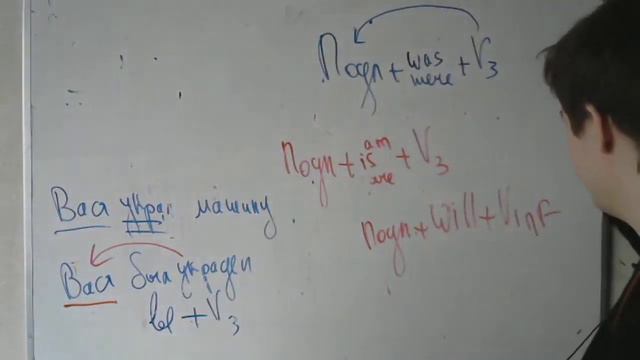 Подл + was were + V3
Подл + am is are + V3
Подл + Will + Vinf
Вася украл машину.
Вася был украден
be + V3